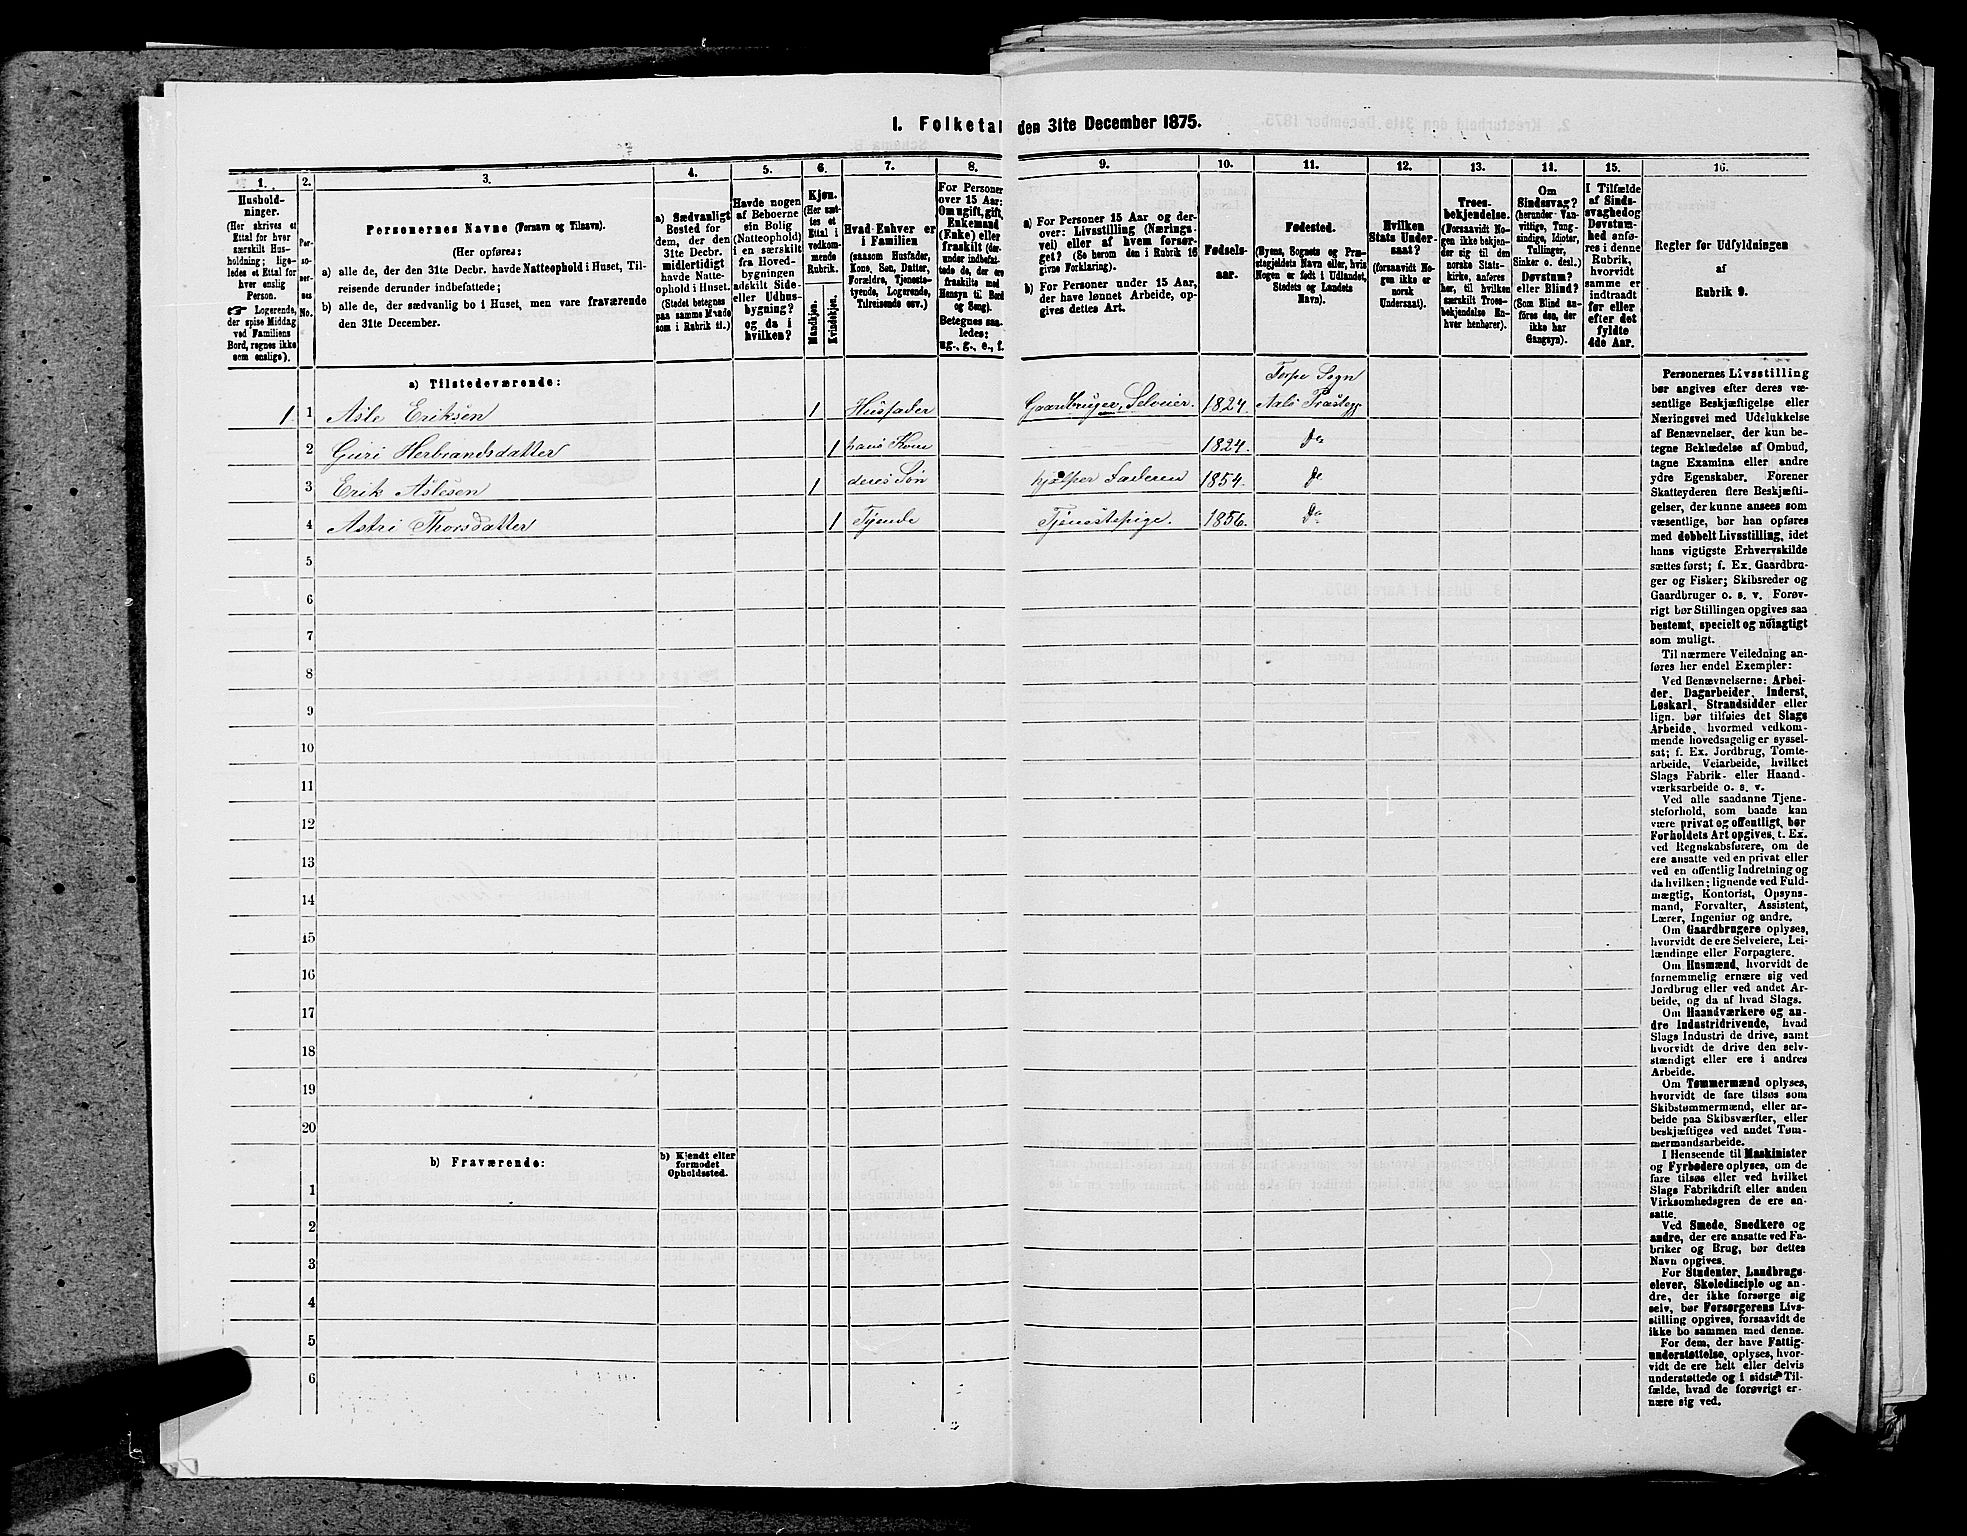 I. Folketal den 31te December 1875.
1.
Hushold-
ninger.
(Her skrives et
Ettal for hver
særskilt Hus-
holdning; lige-
ledes et Ettal for
hver enslig
Person.
☞ Logerende,
der spise Middag
ved Familiens
Bord, regnes ikke
som enslige).
2.
Per-
so-
ner-
nes
No.
3.
Personernes Navne (Fornavn og Tilnavn).
(Her opføres:
a) alle de, der den 31te Decbr. havde Natteophold i Huset, Til-
reisende derunder indbefattede;
b) alle de, der sædvanlig bo i Huset, men vare fraværende
den 31te December.
4.
a) Sædvanligt
Bosted for
dem, der den
31te Decbr.
midlertidigt
havde Natte-
ophold i Huset.
(Stedet betegnes
paa samme Maade
som i Rubrik 11.)
5.
Havde nogen
af Beboerne
sin Bolig
(Natteophold)
i en særskilt
fra Hoved-
bygningen
adskilt Side-
eller Udhus-
bygning?
og da i
hvilken?
6.
Kjøn.
(Her sæt-
tes et
Ettal i
vedkom-
mende
Rubrik.
Mandkjøn.
Kvindekjøn.
7.
Hvad Enhver er
i Familien
(saasom Husfader,
Kone, Søn, Datter,
Forældre, Tjeneste-
tyende, Logerende,
Tilreisende osv.)
8.
For Personer
over 15 Aar:
Om ugift, gift,
Enkemand
(Enke) eller
fraskilt (der-
under indbefat-
tede de, der ere
fraskilte med
Hensyn til Bord
og Seng).
Betegnes saa-
ledes:
ug., g., e., f.
9.
a) For Personer 15 Aar og der-
over: Livsstilling (Nærings-
vei) eller af hvem forsør-
get? (Se herom den i Rubrik 16
givne Forklaring).
b) For Personer under 15 Aar,
der have lønnet Arbeide, op-
gives dettes Art.
10.
Fødsels-
aar.
11.
Fødested.
(Byens, Sognets og Præ-
stegjeldets Navn eller, hvis
Nogen er født i Udlandet,
Stedets og Landets
Navn).
12.
Hvilken
Stats Under-
saat?
(forsaavidt No-
gen ikke er
norsk
Undersaat).
13.
Troes-
bekjendelse.
(Forsaavidt No-
gen ikke bekjen-
der sig til den
norske Stats-
kirke, anføres
her, til hvilken
særskilt Troes-
bekjendelse En-
hver henhører).
14.
Om
Sindssvag?
(herunder Van-
vittige, Tung-
sindige, Idioter,
Tullinger,
Sinker o. desl.)
Døvstum?
eller Blind?
(Som Blind an-
føres den, der
ikke har
Gangsyn).
15.
I Tilfælde
af Sinds-
svaghed og
Døvstum-
hed anfø-
res i denne
Rubrik,
hvorvidt
samme er
indtraadt
før eller
efter det
fyldte
4de Aar.
16.
Regler for Udfyldningen
af
Rubrik 9.
a) Tilstedeværende:
1 1 Asle Eriksen 1 Husfader Gaardbruger, Selveier. 1824. Torpe Sogn Aals Præstegj
2 Guri Herbrandsdatter 1 hans Kone 1824. Do
3 Erik Aslesen 1 deres Søn hjælper Faderen 1854. Do
4 Astri Thorsdatter 1 Tyende Tjenestepige. 1856. Do
5
6
7
8
9
10
11
12
13
14
15
16
17
18
19
20
b) Fraværende:
b) Kjendt eller
formodet
Opholdssted.
1
2
3
4
5
6
Personernes Livsstilling
bør angives efter deres væ-
sentlige Beskjæftigelse eller
Næringsvei med Udelukkelse
af Benævnelser, der kun be-
tegne Beklædelse af Ombud,
tagne Examina eller andre
ydre Egenskaber. Forener
Skatteyderen flere Beskjæfti-
gelser, der kunne ansees som
væsentlige, bør han opføres
med dobbelt Livsstilling, idet
hans vigtigste Erhvervskilde
sættes først; f. Ex. Gaardbru-
ger og Fisker; Skibsreder og
Gaardbruger o. s. v. Forøv-
rigt bør Stillingen opgives saa
bestemt, specielt og nøiagtigt
som muligt.
Til nærmere Veiledning an-
føres her endel Exempler:
Ved Benævnelserne: Arbei-
der, Dagarbeider, Inderst,
Løskarl, Strandsidder eller
lign. bør tilføies det Slags
Arbeide, hvormed vedkom-
mende hovedsagelig er syssel-
sat; f. Ex. Jordbrug, Tomte-
arbeide, Veiarbeide, hvilket
Slags Fabrik- eller Haand-
værksarbeide o. s. v.
Ved alle saadanne Tjene-
steforhold, som baade kan
være privat og offentligt, bør
Forholdets Art opgives, t. Ex.
ved Regnskabsførere, om de
ere ansatte ved en privat eller
ved en offentlig Indretning og
da hvilken; lignende ved Fuld-
mægtig, Kontorist, Opsyns-
mand, Forvalter, Assistent,
Lærer, Ingeniør og andre.
Om Gaardbrugere oplyses,
hvorvidt de ere Selveiere, Lei-
lændinge eller Forpagtere.
Om Husmænd, hvorvidt de
fornemmelig ernære sig ved
Jordbrug eller ved andet Ar-
beide, og da af hvad Slags.
Om Haandværkere og an-
dre Industridrivende, hvad
Slags Industri de drive, samt
hvorvidt de drive den selv-
stændigt eller ere i andres
Arbeide.
Om Tømmermænd oplyses,
hvorvidt de fare tilsøs som
Skibstømmermænd, eller ar-
beide paa Skibsværfter, eller
beskjæftiges ved andet Tøm-
mermandsarbeide.
I Henseende til Maskinister
og Fyrbødere oplyses, om de
fare tilsøs eller ved hvilket
Slags Fabrikdrift eller anden
Virksomhedsgren de ere an-
satte.
Ved Smede, Snedkere og
andre, der ere ansatte ved Fa-
briker og Brug, bør dettes
Navn opgives.
For Studenter, Landbrugs-
elever, Skoledisciple og an-
dre, der ikke forsørge sig
selv, bør Forsørgerens Livs-
stilling opgives, forsaavidt de
ikke bo sammen med denne.
For dem, der have Fattig-
understøttelse, oplyses, hvor-
vidt de ere helt eller delvis
understøttede og i sidste Til-
fælde, hvad de forøvrigt er-
nære sig ved.